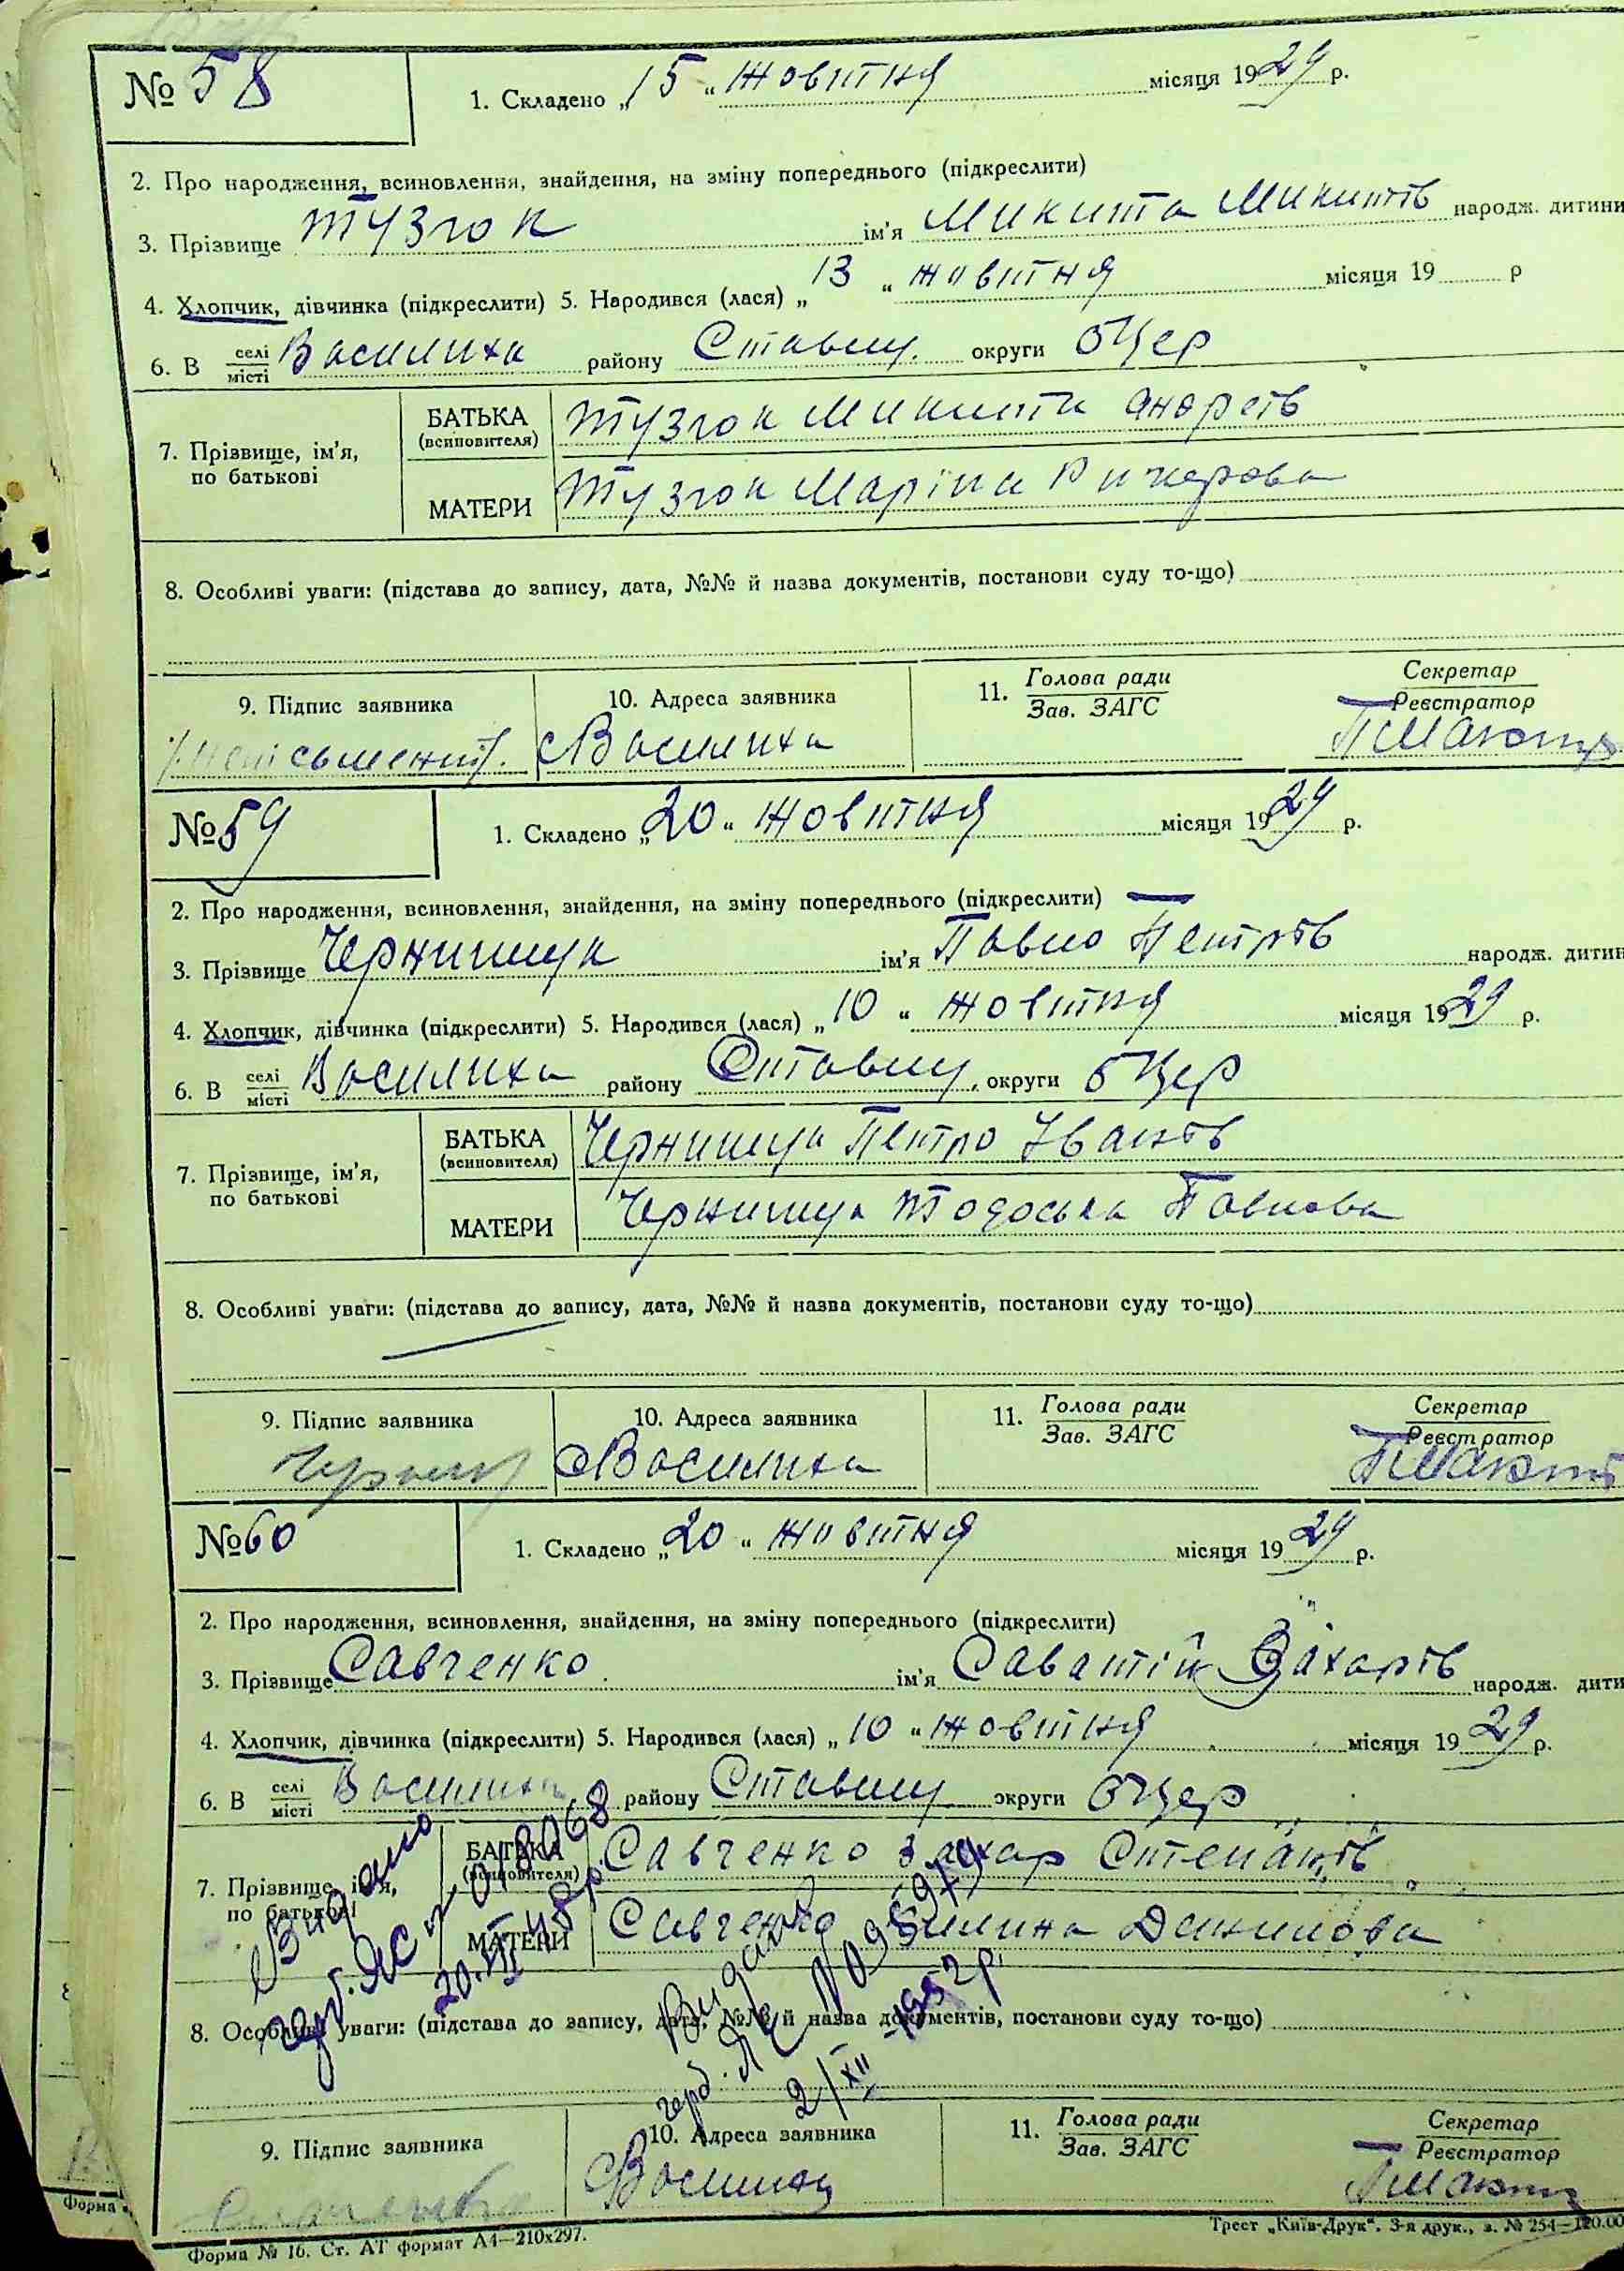 № 58
1. Складено „15“ жовтня місяця 1929 р.
2. Про народження, всиновлення, знайдення, на зміну попереднього (підкреслити)
3. Прізвище Тузюк ім'я Микита Микитів народж. дитини
4. Хлопчик, дівчинка (підкреслити) 5. Народився (лася) „13“ жовтня місяця 19 р
6. В селі місті Василиха району Ставищ. округи БЦер
7. Прізвище, ім'я, по батькові
БАТЬКА (всиновителя) Тузюк Микита Андреїв
МАТЕРИ Тузюк Маріна
8. Особливі уваги: (підстава до запису, дата, №№ й назва документів, постанови суду то-що)
9. Підпис заявника
10. Адреса заявника
11. Голова ради Зав. ЗАГС
Секретар Реєстратор
неписьменний. с Василиха
№ 59
1. Складено „20“ жовтня місяця 1929 р.
2. Про народження, всиновлення, знайдення, на зміну попереднього (підкреслити)
3. Прізвище Чернишук ім'я Павло Петрів народж. дитин
4. Хлопчик, дівчинка (підкреслити) 5. Народився (лася) „10“ жовтня місяця 1929 р.
6. В селі місті Василиха району Ставищ. округи БЦер
7. Прізвище, ім'я, по батькові
БАТЬКА (всиновителя) Чернишук Петро Іванів
МАТЕРИ Чернишук Тодоська Павлова
8. Особливі уваги: (підстава до запису, дата, №№ й назва документів, постанови суду то-що)
9. Підпис заявника
10. Адреса заявника
11. Голова ради Зав. ЗАГС
Секретар Реєстратор
с Василиха
№ 60
1. Складено „20“ жовтня місяця 1929 р.
2. Про народження, всиновлення, знайдення, на зміну попереднього (підкреслити)
3. Прізвище Савченко ім'я Саватій Захарів народж. дити
4. Хлопчик, дівчинка (підкреслити) 5. Народився (лася) „10“ жовтня місяця 1929 р.
6. В селі місті Василиха району Ставищ округи БЦер
7. Прізвище, ім'я, по батькові
БАТЬКА (всиновителя) Савченко Захар Степанів
МАТЕРИ Савченко Данилова
Видано
Видано
2/XII 1952 р.
8. Особливі уваги: (підстава до запису, дата, №№ й назва документів, постанови суду то-що)
9. Підпис заявника
10. Адреса заявника
11. Голова ради Зав. ЗАГС
Секретар Реєстратор
с Василиха
Форма
Форма № 16. Ст. АТ формат А4—210х297.
Трест „Київ-Друк“. 3-я друк., з. № 254—120.00